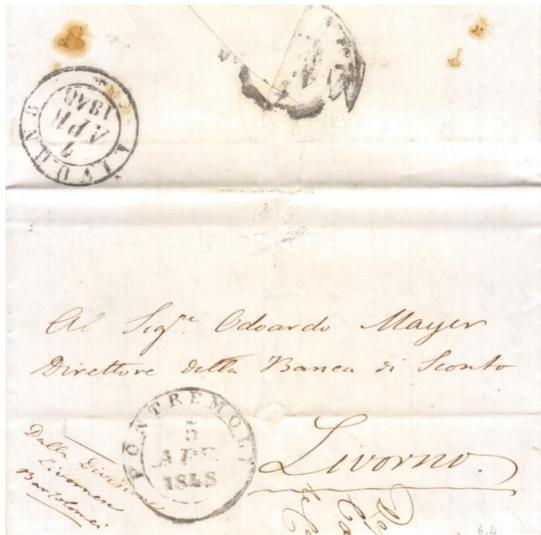 LIVORNO
7
APR
1848
Al Sigre. Odoardo Mayer
Direttore della Banca di Sconto
Livorno.
PONTREMOLI
5
APR
1848
Dalla Divisione
Livornese
Bartolomei
6.4